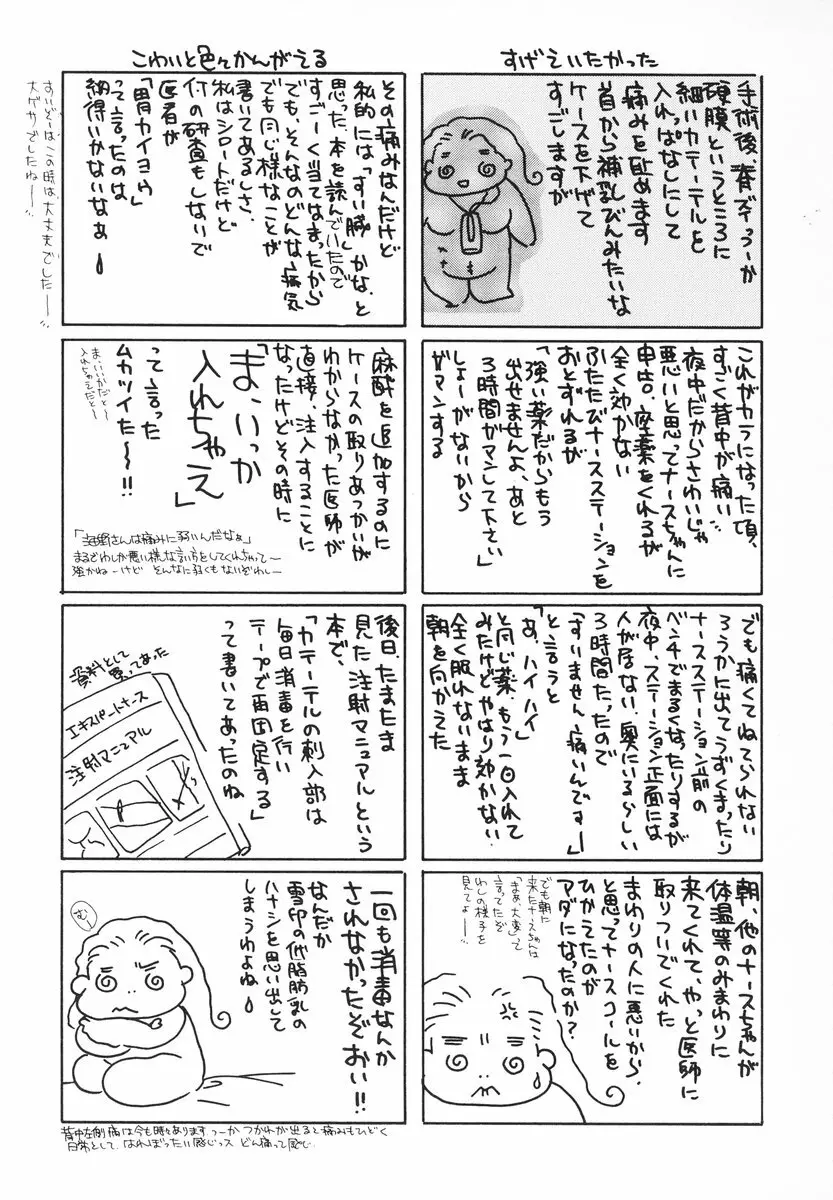 すげえいたかった
手術後、脊ずいっつーか
硬膜というところに
細いカテーテルを
入れっぱなしにして
痛みを止めます
首から補乳びんみたいな
ケースを下げて
すごしますが
これがカラになった頃、
すごく背中が痛い
夜中だからさわいじゃ
悪いと思ってナースちゃんに
申告。座薬をくれるが
全く効かない
ふたたびナースステーションを
おとずれるが
「強い薬だからもう
出せませんよ、あと
3時間ガマンして下さい」
しょーがないから
ガマンする
でも痛くてねてられない
ろうかに出てうずくまったり
ナースステーション前の
ベンチでまるくなったりするが
夜中、ステーション正面には
人が居ない、奥にいるらしい
3時間たったので
「すいません、痛いんですー」
と言うと
「あ、ハイハイ」
と同じ薬、もう一回入れて
みたけどやはり効かない.
全く眠れないまま
朝を向かえた
朝、他のナースちゃんが
体温等のみまわりに
来てくれて、やっと医師に
取りついでくれた
まわりの人に悪いから、
と思ってナースコールを
ひかえたのが
アダになったのか?
でも朝に
来たナースちゃんは
「まぁ、大変」って
言ってたぞ
わしの様子を
見てよー
こわいと色々かんがえる
その痛みなんだけど
私的には「すい臓」かな、と
思った.本を読んでいたので
すごーく当てはまったから
でも、そんなのどんな病気
でも同じ様なことが
書いてあるしさ.
私はシロートだけど
何の研査もしないで
医者が
「胃カイヨウ」
って言ったのは
納得いかないなぁ
すいぞーはこの時は、大丈夫でしたー
大ゲサでしたねー
麻酔を追加するのに
ケースの取りあつかいが
わからなかった医師が
直接、注入することに
なったけどその時に
「ま、いっか
入れちゃえ」
って言った
ムカツイたー〜!!
ま、いいかだと〜
入れちゃえだと〜
さんは痛みに弱いんだなぁ」
まるでわしが悪い様な言い方をしてくれちゃって〜
強かねーけど そんなに弱くもないぞわしー
後日、たまたま
見た注射マニュアルという
本で、
「カテーテルの刺入部は
毎日消毒を行い
テープで再固定する」
って書いてあったのね
資料として
買ってあった
エキスパートナース
注射マニュアル
一回も消毒なんか
されなかったぞおい!!
なんだか
雪印の低脂肪乳の
ハナシを思い出して
しまうわよね
むー
背中左側痛は今も時々あります.つーか つかれが出ると痛みもひどく
日常として、はれぼったい感じっス どん痛って感じ.